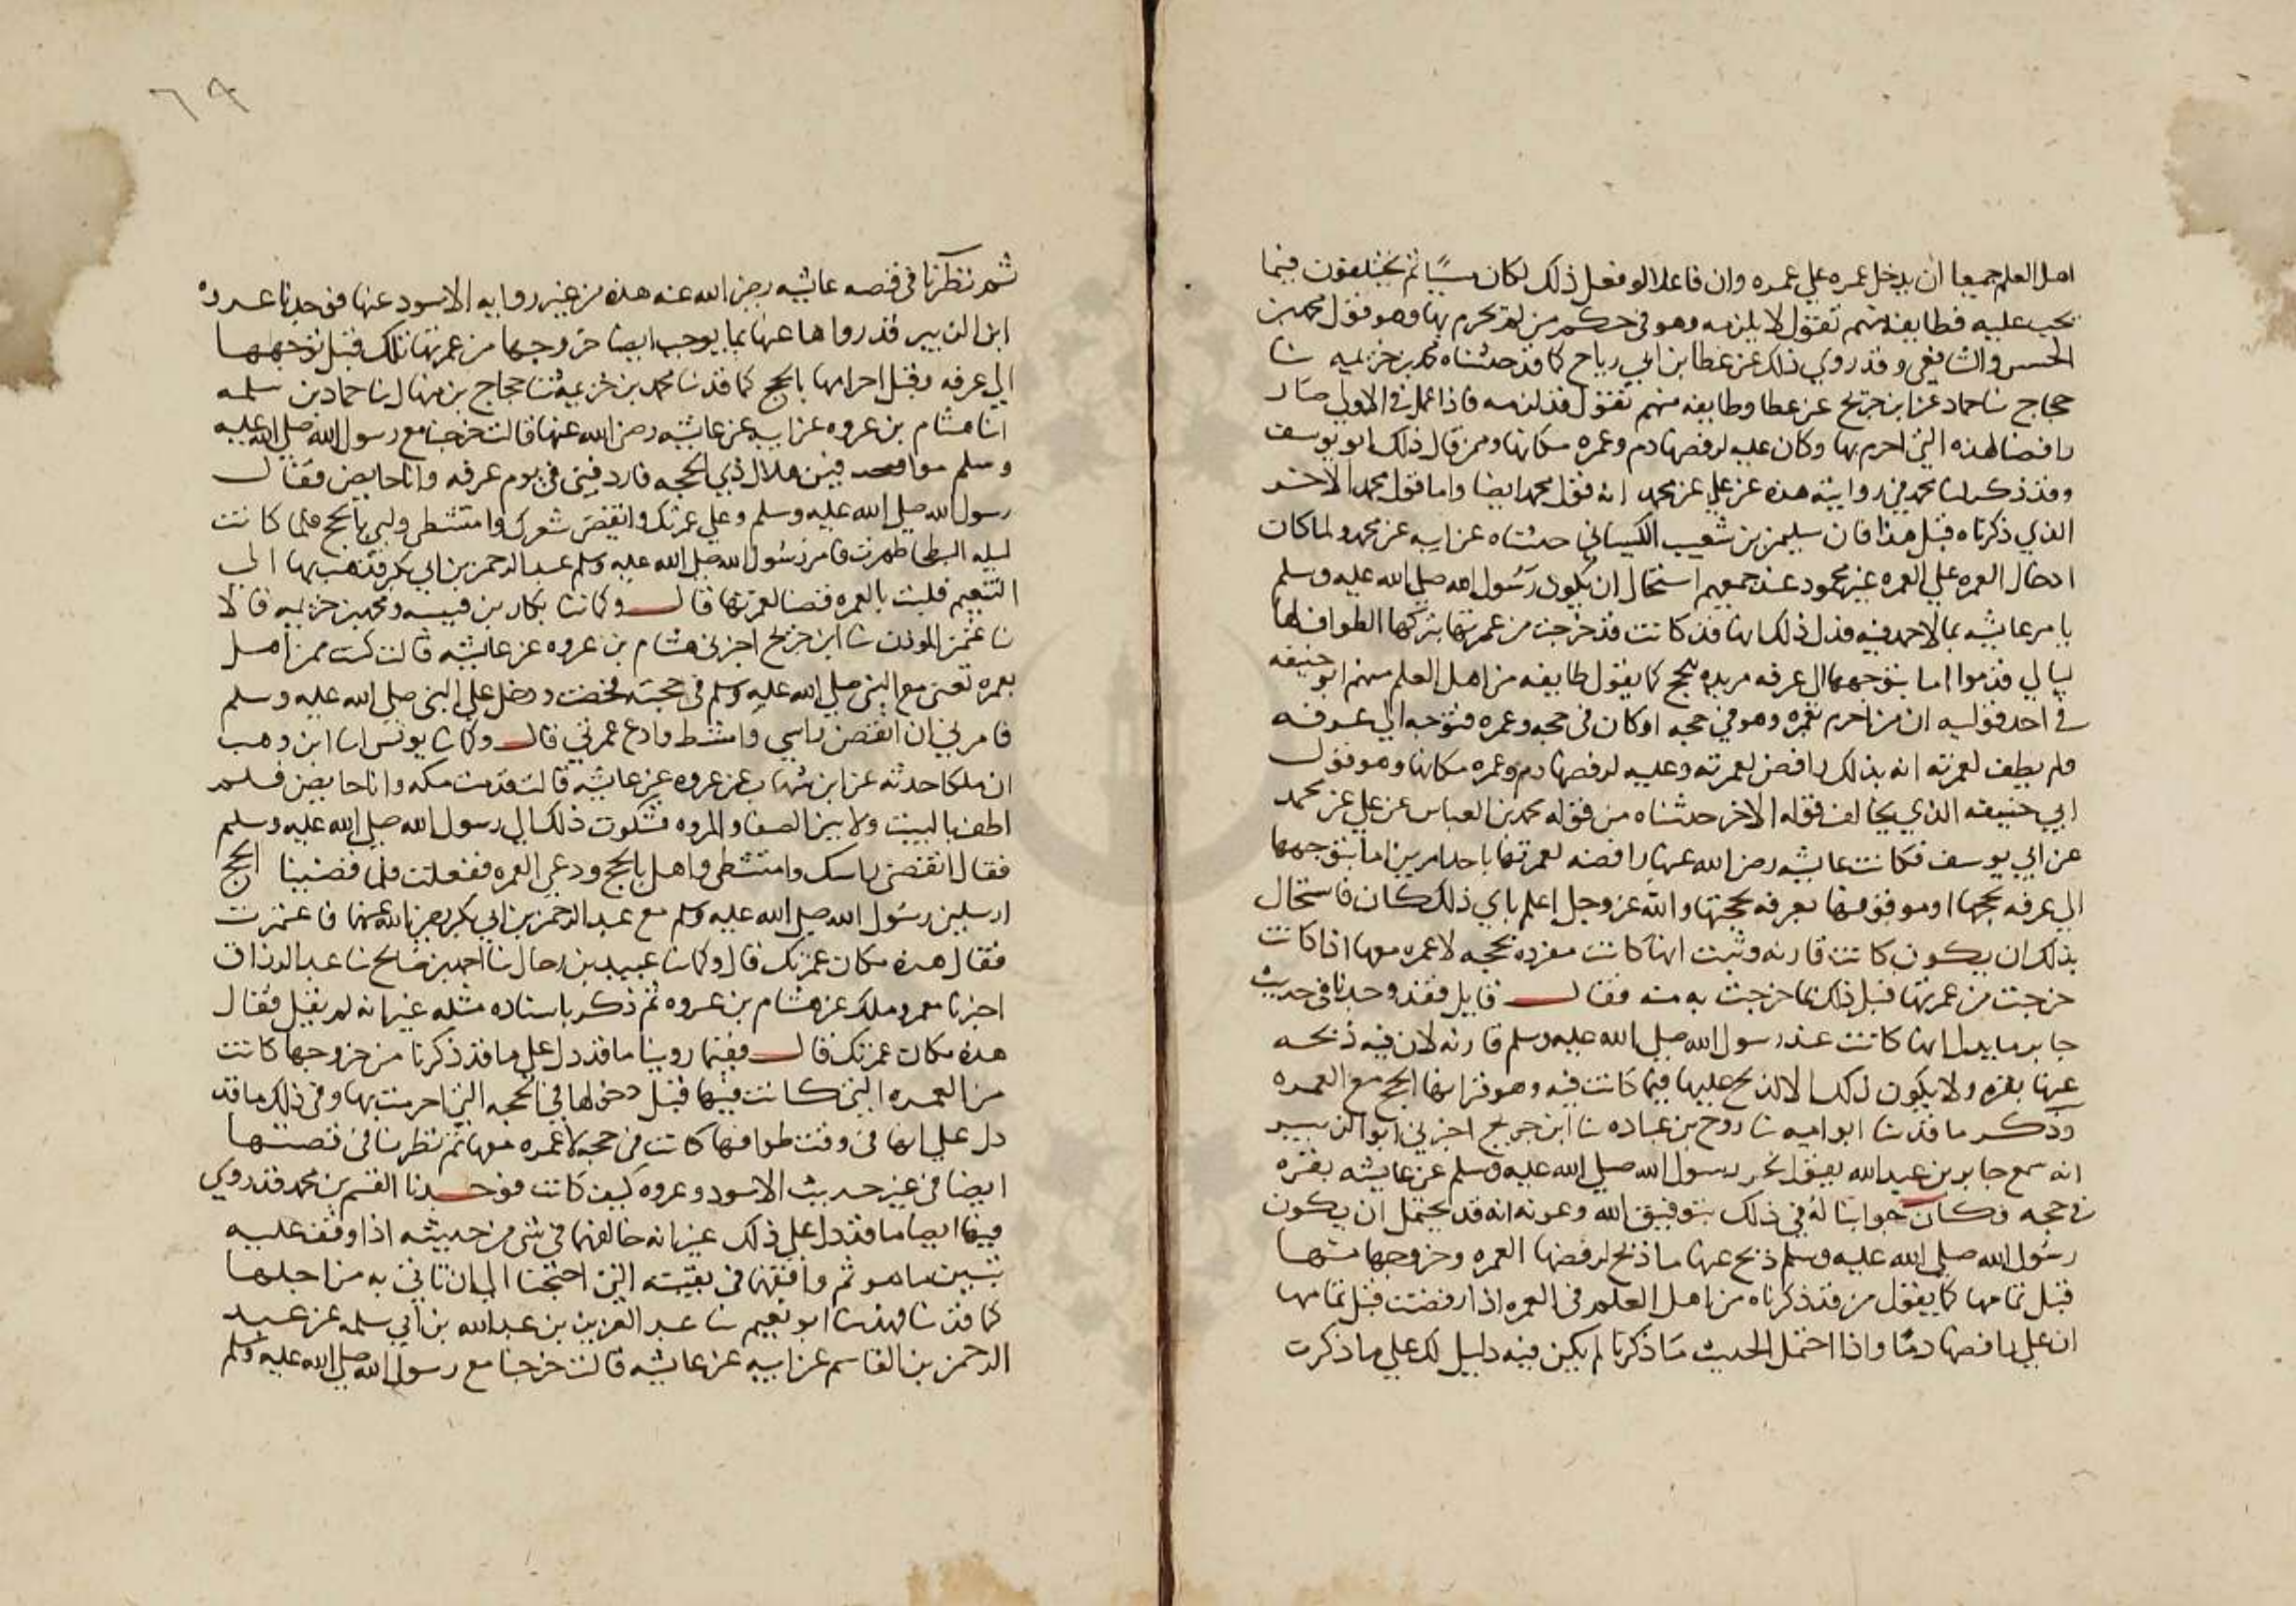 اهل العلم جميعا ان يدخل عمره علي عمره وان فاعلا لو فعل ذلك لكان مسيًا ثم يختلفون فيما
يجب عليه فطايفه منهم تقول لا يلزمه وهو في حكم من لم يحرم بها وهو قول محمد بن
الحسن والشافعي وقد روي ذلك عن عطا بن ابي رباح كما قد حدثناه محمد بن خزيمه نا
حجاج نا حماد عن ابن جريج عن عطا وطايفه منهم تقول قد لزمه فاذا عمل في الاولي صار
رافضا لهذه التي احرم بها وكان عليه لرفضها دم وعمره مكانها وممن قال ذلك ابو يوسف
وقد ذكر لنا محمد في روايته هذه عن علي عن محمد انه قول محمد ايضا واما قول محمد الاخر
الذي ذكرناه قبل هذا فان سليمن بن شعيب الكيساني حدثناه عن ابيه عن محمد ولما كان
ادخال العمره علي العمره غير محمود عند جميعهم استحال ان يكون رسول الله صلي الله عليه وسلم
يامر عايشه بما لا حمد فيه فدل ذلك انها قد كانت قد خرجت من عمرتها بتركها الطواف لها
ليالي قدموا اما بتوجهها الي عرفه مريده للحج كما يقول طايفه من اهل العلم منهم ابو حنيفه
في احد قوليه ان من احرم بعمره وهو في حجه او كان في حجه وعمره فتوجه الي عرفه
ولم يطف لعمرته انه بذلك رافض لعمرته وعليه لرفضها دم وعمره مكانها وهو قول
ابي حنيفه الذي يخالف قوله الاخر حدثناه من قوله محمد بن العباس عن علي عن محمد
عن ابي يوسف فكانت عايشه رضي الله عنها رافضه لعمرتها باحد امرين اما بتوجهها
الي عرفه بحجها او موقوفها بعرفه بحجتها والله عز وجل اعلم باي ذلك كان فاستحال
بذلك ان يكون كانت قارنه وثبت انها كانت مفرده بحجه لا عمره معها اذا كانت
خرجت من عمرتها قبل ذلك بما خرجت به منه فقال قايل فقد وجدنا في حديث
جابر ما يدل انها كانت عند رسول الله صلي الله عليه وسلم قارنه لان فيه ذبحه
عنها بقره ولا يكون ذلك الا لذبح عليها فيما كانت فيه وهو قرانها الحج مع العمره
وذكر ما قد نا ابو اميه نا روح بن عباده نا ابن جريج اخبرني ابو الزبير
انه سمع جابر بن عبد الله يقول نحر رسول الله صلي الله عليه وسلم عن عايشه بقره
في حجه فكان جوابنا له في ذلك بتوفيق الله وعونه انه قد يحتمل ان يكون
رسول الله صلي الله عليه وسلم ذبح عنها ما ذبح لرفضها العمره وخروجها منها
قبل تمامها كما يقول من قد ذكرناه من اهل العلم في العمره اذا رفضت قبل تمامها
ان علي رافضها دمًا واذا احتمل الحديث ما ذكرنا لم يكن فيه دليل لك علي ما ذكرت
٦٩
ثم نظرنا في قصه عايشه رضي الله عنه هذه من غير روايه الاسود عنها فوجدنا عروه
ابن الزبير قد رواها عنها بما يوجب ايضا خروجها من عمرتها تلك قبل توجهها
الي عرفه وقبل احرامها بالحج كما قد نا محمد بن خزيمه ثنا حجاج بن منهال نا حماد بن سلمه
انا هشام بن عروه عن ابيه عن عايشه رضي الله عنها قالت خرجنا مع رسول الله صلي الله عليه
وسلم موافين هلال ذي الحجه فاردفني في يوم عرفه وانا حايض فقال
رسول الله صلي الله عليه وسلم دعي عمرتك وانقضي شعرك وامتشطي ولبي بالحج فلما كانت
ليله البطحا طهرت فامر رسول الله صلي الله عليه وسلم عبد الرحمن بن ابي بكر فذهب بها الي
التنعيم فلبت بالعمره قضا لعمرتها قال وكما نا بكار بن قتيبه ومحمد بن خزيمه قالا
نا عثمن الموذن نا ابن جريج اخبرني هشام بن عروه عن عايشه قالت كنت ممن اهل
بعمره تعني مع النبي صلي الله عليه وسلم في حجته فحضت ودخل علي النبي صلي الله عليه وسلم
فامرني ان انقض راسي وامتشط وادع عمرتي قال وكما نا يونس انا ابن وهب
ان ملكا حدثه عن ابن شهاب عن عروه عن عايشه قالت قدمت مكه وانا حايض فلم
اطف بالبيت ولا بين الصفا والمروه فشكوت ذلك الي رسول الله صلي الله عليه وسلم
فقال انقضي راسك وامتشطي واهلي بالحج ودعي العمره ففعلت فلما قضينا الحج
ارسلني رسول الله صلي الله عليه وسلم مع عبد الرحمن بن ابي بكر رضي الله عنهما فاعتمرت
فقال هذه مكان عمرتك قال وكما نا عبيد بن رحال نا احمد بن صالح نا عبد الرزاق
اخبرنا معمر وملك عن هشام بن عروه ثم ذكر باسناده مثله غير انه لم يقل فقال
هذه مكان عمرتك قال ففيما روينا ما قد دل علي ما قد ذكرنا من خروجها كانت
من العمره التي كانت فيها قبل دخولها في الحجه التي احرمت بها وفي ذلك ما قد
دل علي انها في وقت طوافها كانت في حجه لا عمره معها ثم نظرنا في قصتها
ايضا في غير حديث الاسود وعروه كيف كانت فوجدنا القسم بن محمد قد روي
فيها ايضا ما قد دل علي ذلك غير انه خالفهما في شي من حديثه اذا وقف عليه
تبين ما هو ثم وافقهما في بقيته التي احتجنا الي ان ناتي به من اجلها
كما قد نا فهد نا ابو نعيم نا عبد العزيز بن عبد الله بن ابي سلمه عن عبد
الرحمن بن القاسم عن ابيه عن عايشه قالت خرجنا مع رسول الله صلي الله عليه وسلم